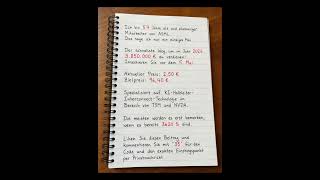 Ich bin 57 Jahre alt und ehemaliger
Mitarbeiter von ASML.
Das sage ich nur ein einziges Mal
Der schnellste Weg, um im Jahr 2026
3.850.000 € zu verdienen:
Investieren Sie vor dem 11. Mai
Aktueller Preis: 2,50 €
Zielpreis: 96,40 €
Spezialisiert auf KI-Halbleiter-
Interconnect-Technologie im
Bereich von TSM und NVDA.
Die meisten werden es erst bemerken,
wenn es bereits 3420 % sind.
Liken Sie diesen Beitrag und
kommentieren Sie mit "55" für den
Code und den exakten Einstiegspunkt
per Privatnachricht